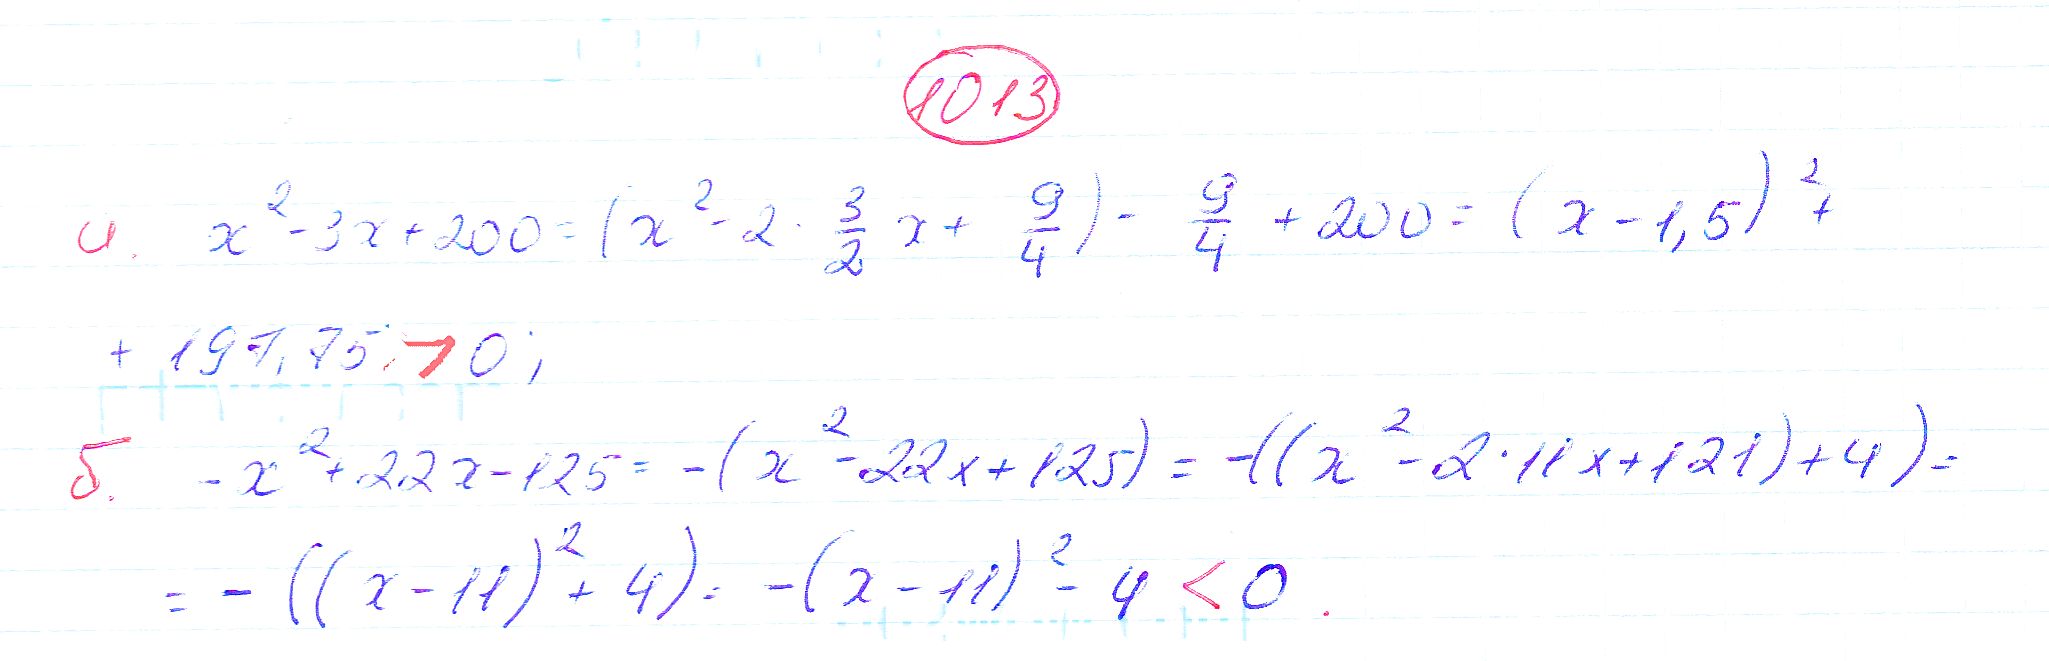 1013
а. x² - 3x + 200 = (x² - 2 · 3/2 x + 9/4) - 9/4 + 200 = (x - 1,5)² +
+ 197,75 > 0;
б. -x² + 22x - 125 = -(x² - 22x + 125) = -((x² - 2 · 11x + 121) + 4) =
= -((x - 11)² + 4) = -(x - 11)² - 4 < 0.